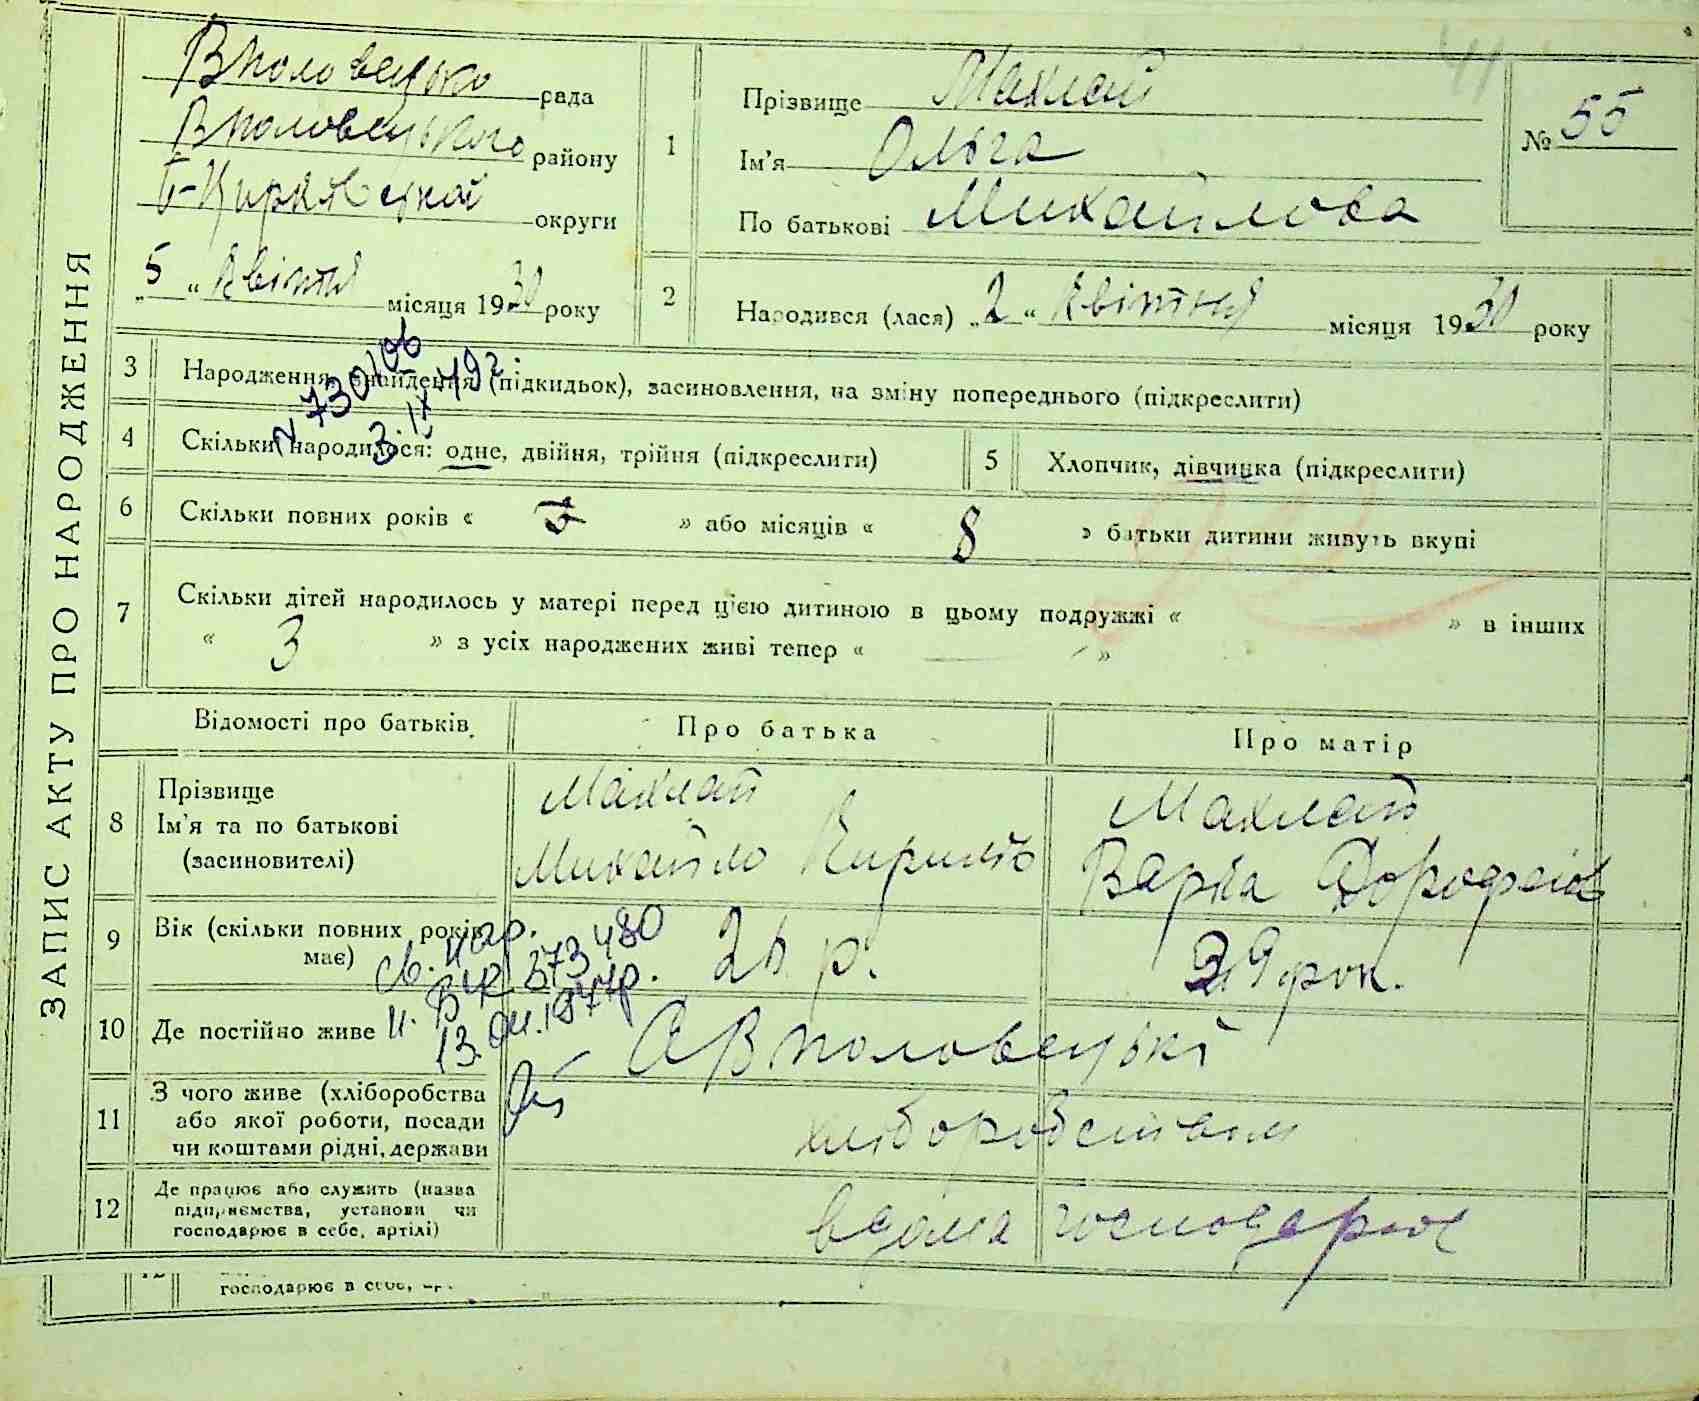 ЗАПИС АКТУ ПРО НАРОДЖЕННЯ
Вполовецько рада
Вполовецького району
Б-Церківської округи
„5“ Квітня місяця 1930 року
1
Прізвище Махлай
Ім'я Ольга
По батькові Михайлова
№ 55
2
Народився (лася) „2“ Квітня місяця 1930 року
3
Народження, знайдення (підкидьок), засиновлення, на зміну попереднього (підкреслити)
730106
3.IX 49г.
4
Скільки народилося: одне, двійня, трійня (підкреслити)
5
Хлопчик, дівчинка (підкреслити)
6
Скільки повних років « » або місяців « 8 » батьки дитини живуть вкупі
7
Скільки дітей народилось у матері перед цією дитиною в цьому подружжі « » в інших
« 3 » з усіх народжених живі тепер « — »
Відомості про батьків
Про батька
Про матір
8
Прізвище
Ім'я та по батькові
(засиновителі)
Махлай
Михайло Кирилів
Махлай
Варка Дорофеїв
9
Вік (скільки повних років має)
р.
29 рок.
10
Де постійно живе
С Вполовецькі
11
З чого живе (хліборобства
або якої роботи, посади
чи коштами рідні, держави
хліборобством
12
Де працює або служить (назва
підприємства, установи чи
господарює в себе, артілі)
вдома господарює
господарює в себе,